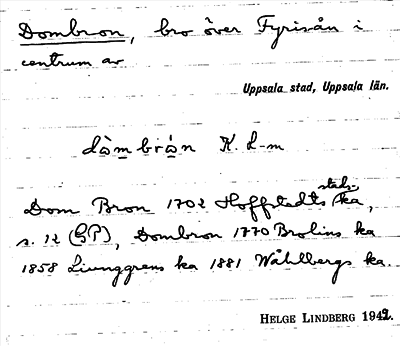 Dombron, bro över Fyrisån i
centrum av
Uppsala stad, Uppsala län.
dòmbrón K. L-m
stads-
Dom Bron 1702 Hoffstedts ka,
s. 12 (GP), Dombron 1770 Brolins ka
1858 Ljunggrens ka 1881 Wåhlbergs ka.
HELGE LINDBERG 1942.